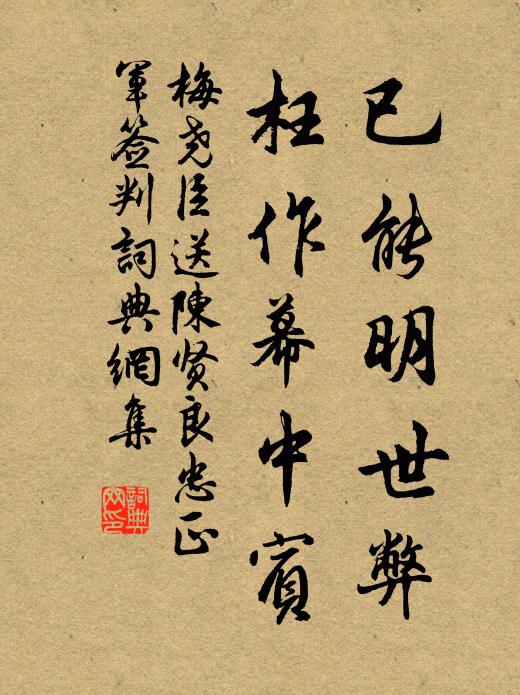 已能明世弊
枉作幕中賓
梅尧臣送陳贤良忠正
軍签判詞典網集
詞典
网印